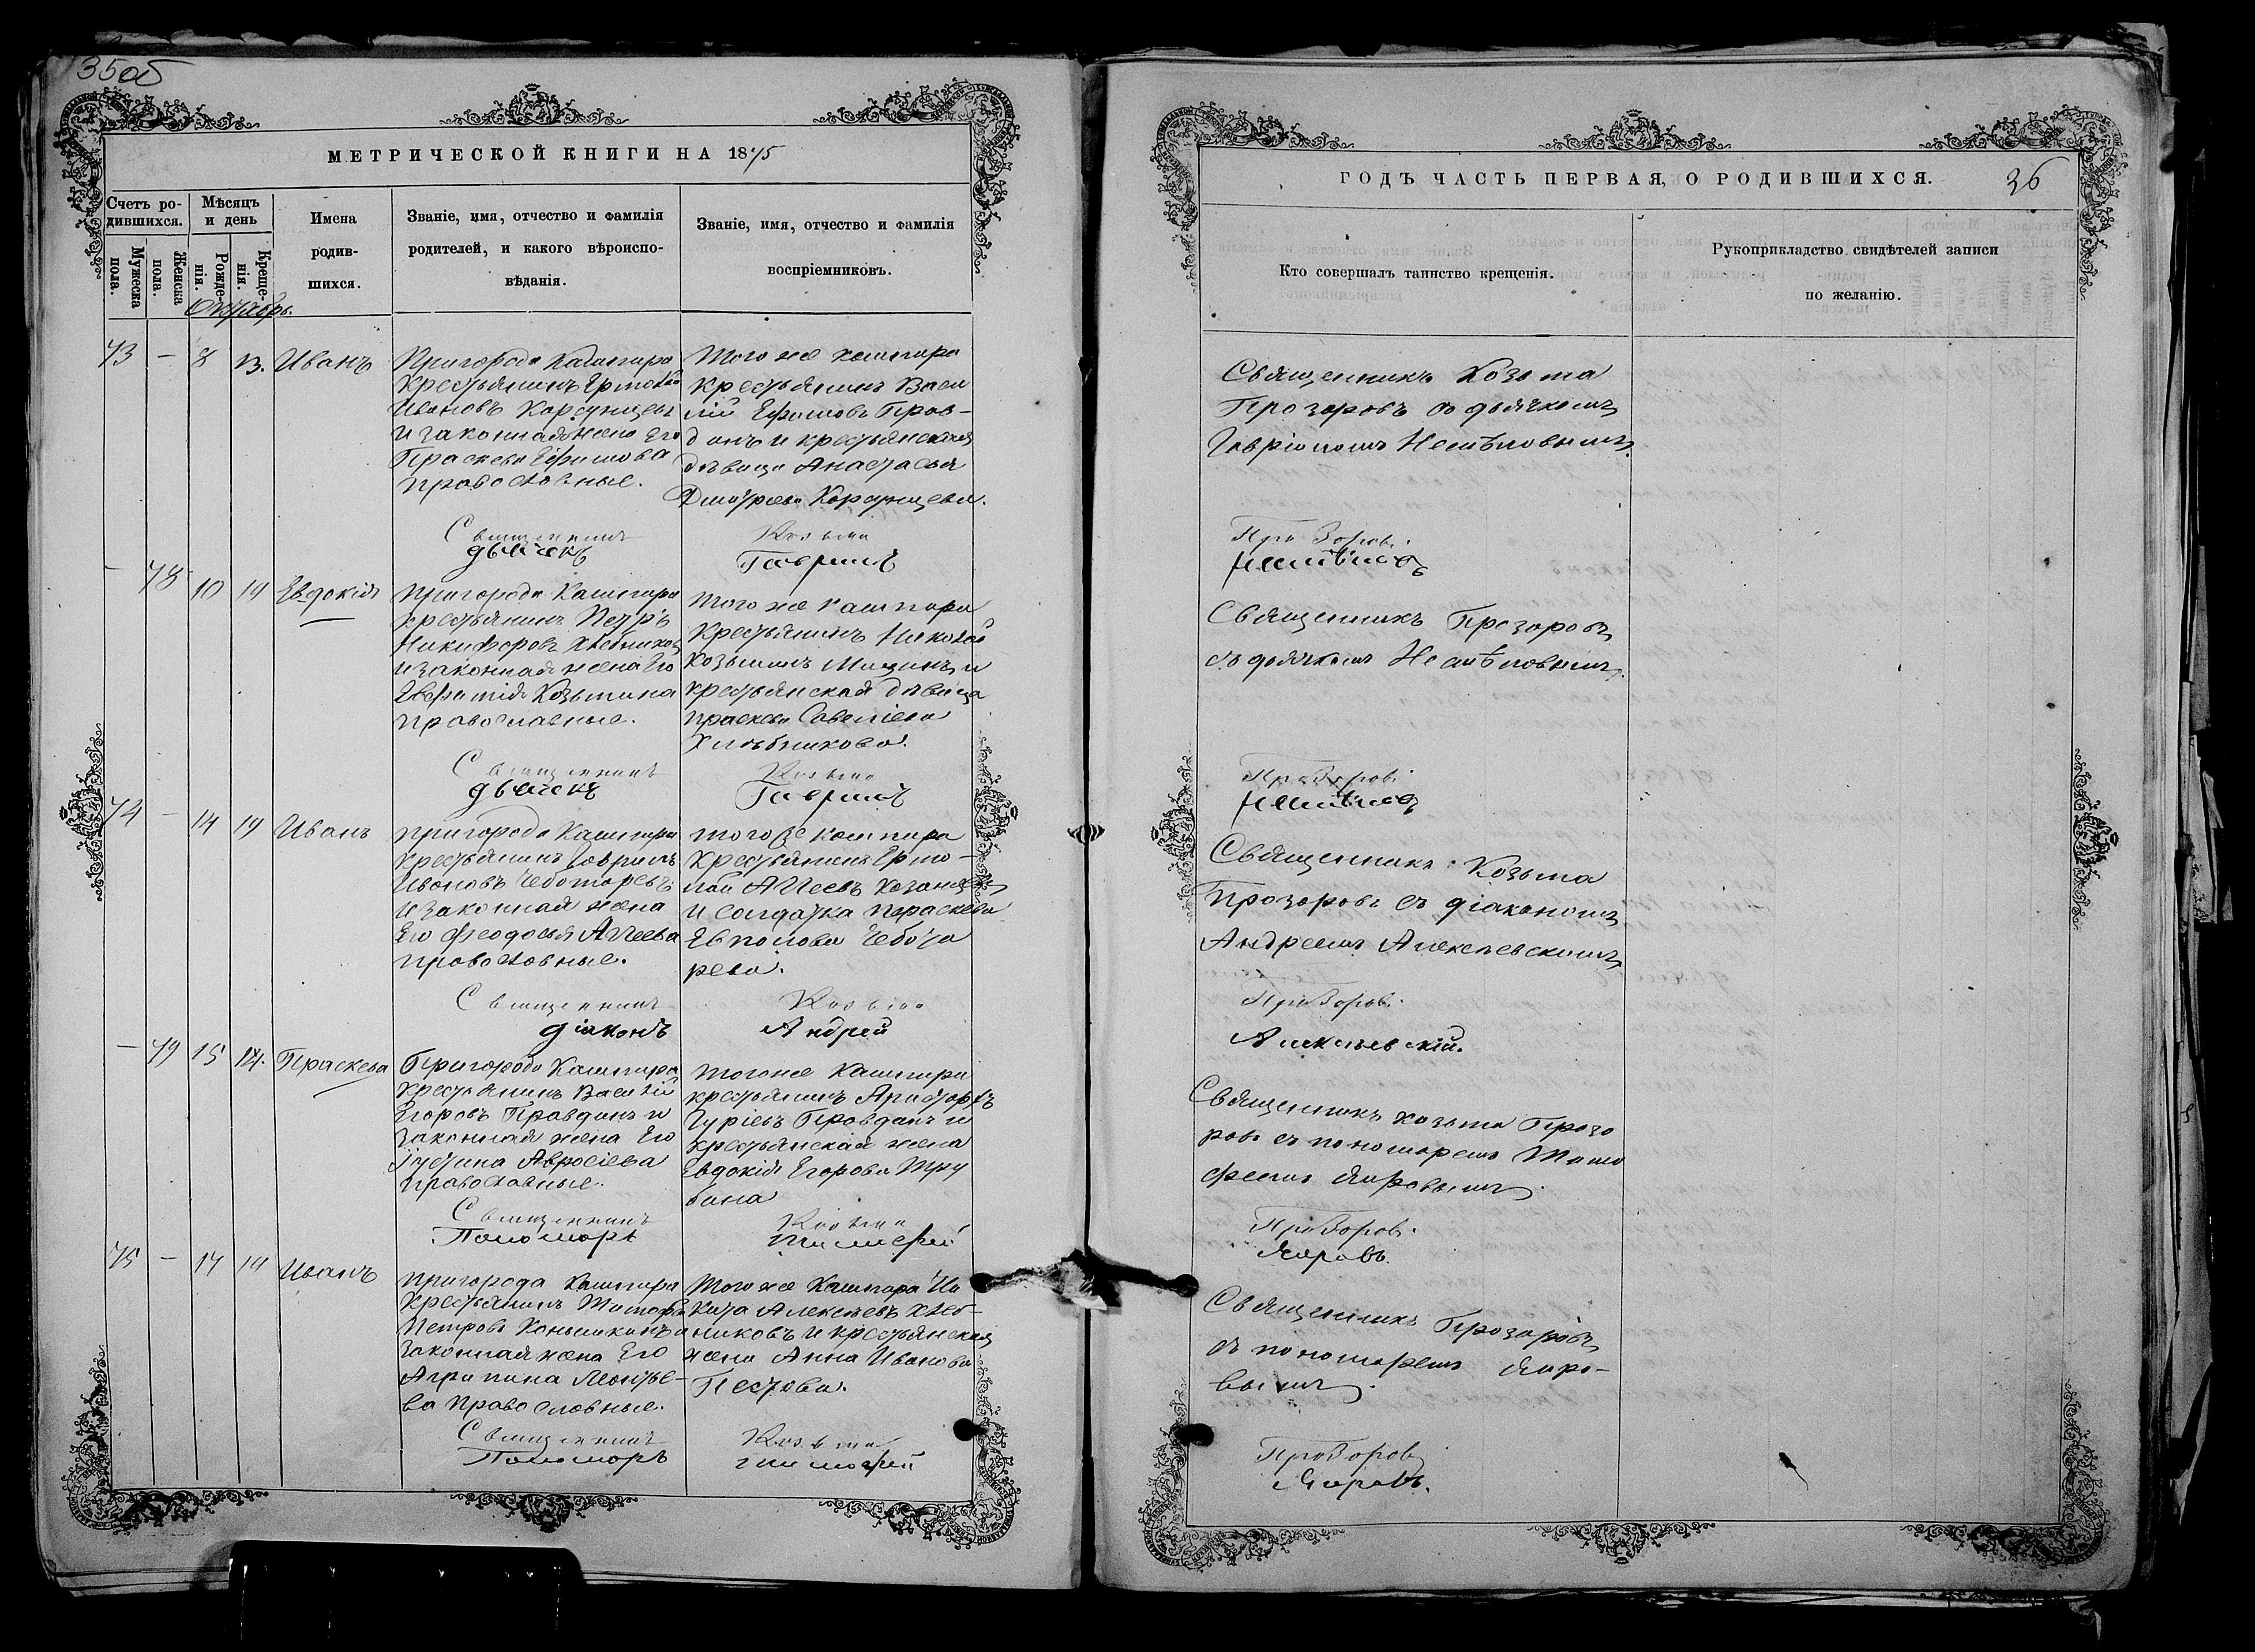 35об
МЕТРИЧЕСКОЙ КНИГИ НА 1875
Счетъ ро-
дившихся.
Мужеска
пола.
Женска
пола.
Мѣсяцъ
и день
Рожде-
нія.
Креще-
нія.
Имена
родив-
шихся.
Званіе, имя, отчество и фамилія
родителей, и какого вѣроиспо-
вѣданія.
Званіе, имя, отчество и фамилія
воспріемниковъ.
Октябрь.
73 — 8 13. Иванъ
Пригорода Кашпира
крестьянинъ Ермолай
Ивановъ Карсунцевъ
и законная жена его
Праскева Ефимова
православные.
Того же кашпира
крестьянинъ Васи
лій Ефимовъ Прав-
динъ и крестьянская
дѣвица Анастасія
Дмитріева Карсунцева.
Священникъ Козьма
дьячекъ Гавріилъ
— 78 10 19 Евдокія
Пригорода Кашпира
крестьянинъ Петръ
Никифоровъ Хлебниковъ
и законная жена его
Евфимія Козьмина
православные.
Того же Кашпира
крестьянинъ Николай
Козьминъ Мишинъ и
крестьянская дѣвица
Праскева Савеліева
Хлѣбникова.
Священникъ Козьма
дьячекъ Гавріилъ
74 — 14 19 Иванъ
Пригорода Кашпира
крестьянинъ Гавріилъ
Ивановъ Чеботаревъ
и законная жена
его Феодосія Агеева
православные.
того же кашпира
крестьянинъ Ермо-
лай Агеевъ Казанцевъ
и солдатка Параскева
Чебота
рева.
Священникъ Козьма
діаконъ Андрей
— 79 15 19. Праскева
Пригорода Кашпира
крестьянинъ Василій
Егоровъ Правдинъ и
законная жена его
Іустина
православные.
Того же Кашпира
крестьянинъ
Гуріевъ Правдинъ и
крестьянская жена
Евдокія Егорова Тру
бина
Священникъ Козьма
Пономарь Тимофей
75 — 17 19 Иванъ
Пригорода Кашпира
крестьянинъ Тимофей
Петровъ Коньшинъ и
законная жена его
Агрипина Леонтье-
ва Православные.
Того же Кашпира Ни
кита Алексѣевъ Хлеб-
никовъ и крестьянская
жена Анна Иванова
Пестова.
Священникъ Козьма
Пономарь Тимофей
ГОДЪ ЧАСТЬ ПЕРВАЯ, О РОДИВШИХСЯ.
36
Кто совершалъ таинство крещенія.
Рукоприкладство свидѣтелей записи
по желанію.
Священникъ Козьма
Прозоровъ съ дьячкомъ
Гавріиломъ Несмѣловымъ.
Прозоровъ.
Несмѣловъ
Священникъ Прозоровъ
съ дьячкомъ Несмѣловымъ.
Прозоровъ.
Несмѣловъ
Священникъ Козьма
Прозоровъ съ діакономъ
Андреемъ Алексѣевскимъ
Прозоровъ.
Алексѣевскій.
Священникъ Козьма Прозо
ровъ съ пономаремъ Тимо
феемъ Яировымъ.
Прозоровъ.
Яировъ.
Священникъ Прозоровъ
съ пономаремъ Яиро-
вымъ.
Прозоровъ
Яировъ.